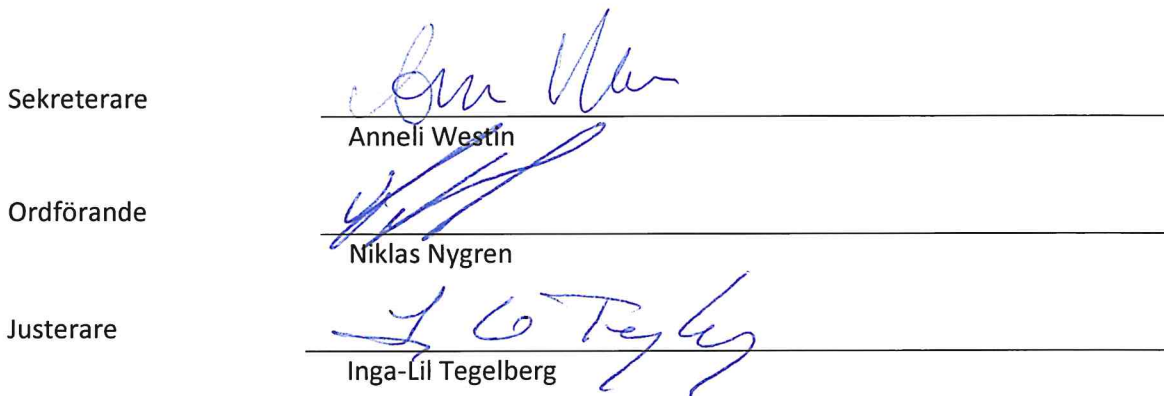 Sekreterare
Anneli Westin
Ordförande
Niklas Nygren
Justerare
Inga-Lil Tegelberg